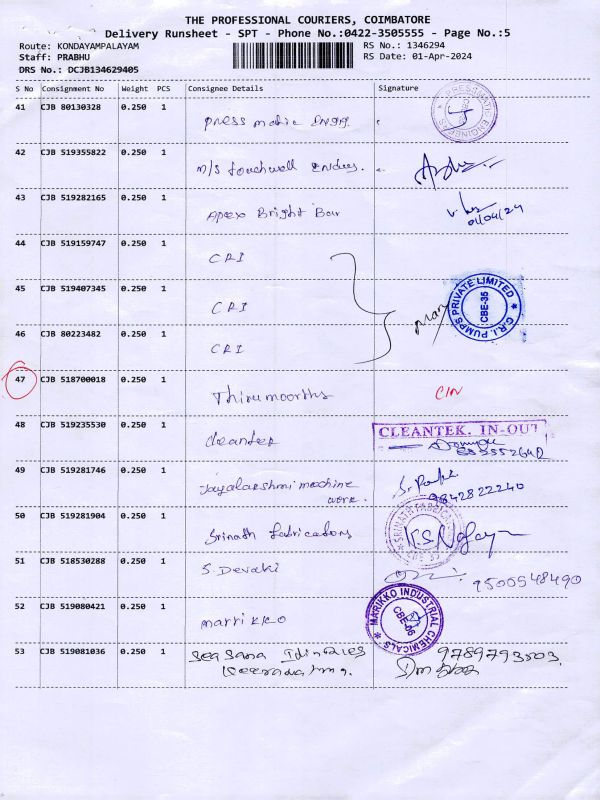 THE PROFESSIONAL COURIERS, COIMBATORE
Delivery Runsheet - SPT - Phone No.:0422-3505555 - Page No.:5
Route: KONDAYAMPALAYAM
Staff: PRABHU
DRS No.: DCJB134629405
RS No.: 1346294
RS Date: 01-Apr-2024
S No Consignment No Weight PCS Consignee Details Signature
41 CJB 80130328 0.250 1 Press matic Engg.
42 CJB 519355822 0.250 1 M/s Touchwell
43 CJB 519282165 0.250 1 Apex Bright Bar 01/04/24
44 CJB 519159747 0.250 1 CRI
45 CJB 519407345 0.250 1 CRI C.R.I. PUMPS PRIVATE LIMITED CBE-35
46 CJB 80223482 0.250 1 CRI
47 CJB 518700018 0.250 1 Thirumoorthy CIN
48 CJB 519235530 0.250 1 Cleantek CLEANTEK. IN-OUT
49 CJB 519281746 0.250 1 Jayalakshmi machine work. 9842822240
50 CJB 519281904 0.250 1 Srinath Fabrications SRINATH FABRICATIONS
51 CJB 518530288 0.250 1 S. Devaki 9500548490
52 CJB 519080421 0.250 1 Marrikko MARIKKO INDUSTRIAL CHEMICALS CBE-06
53 CJB 519081036 0.250 1 9789793503